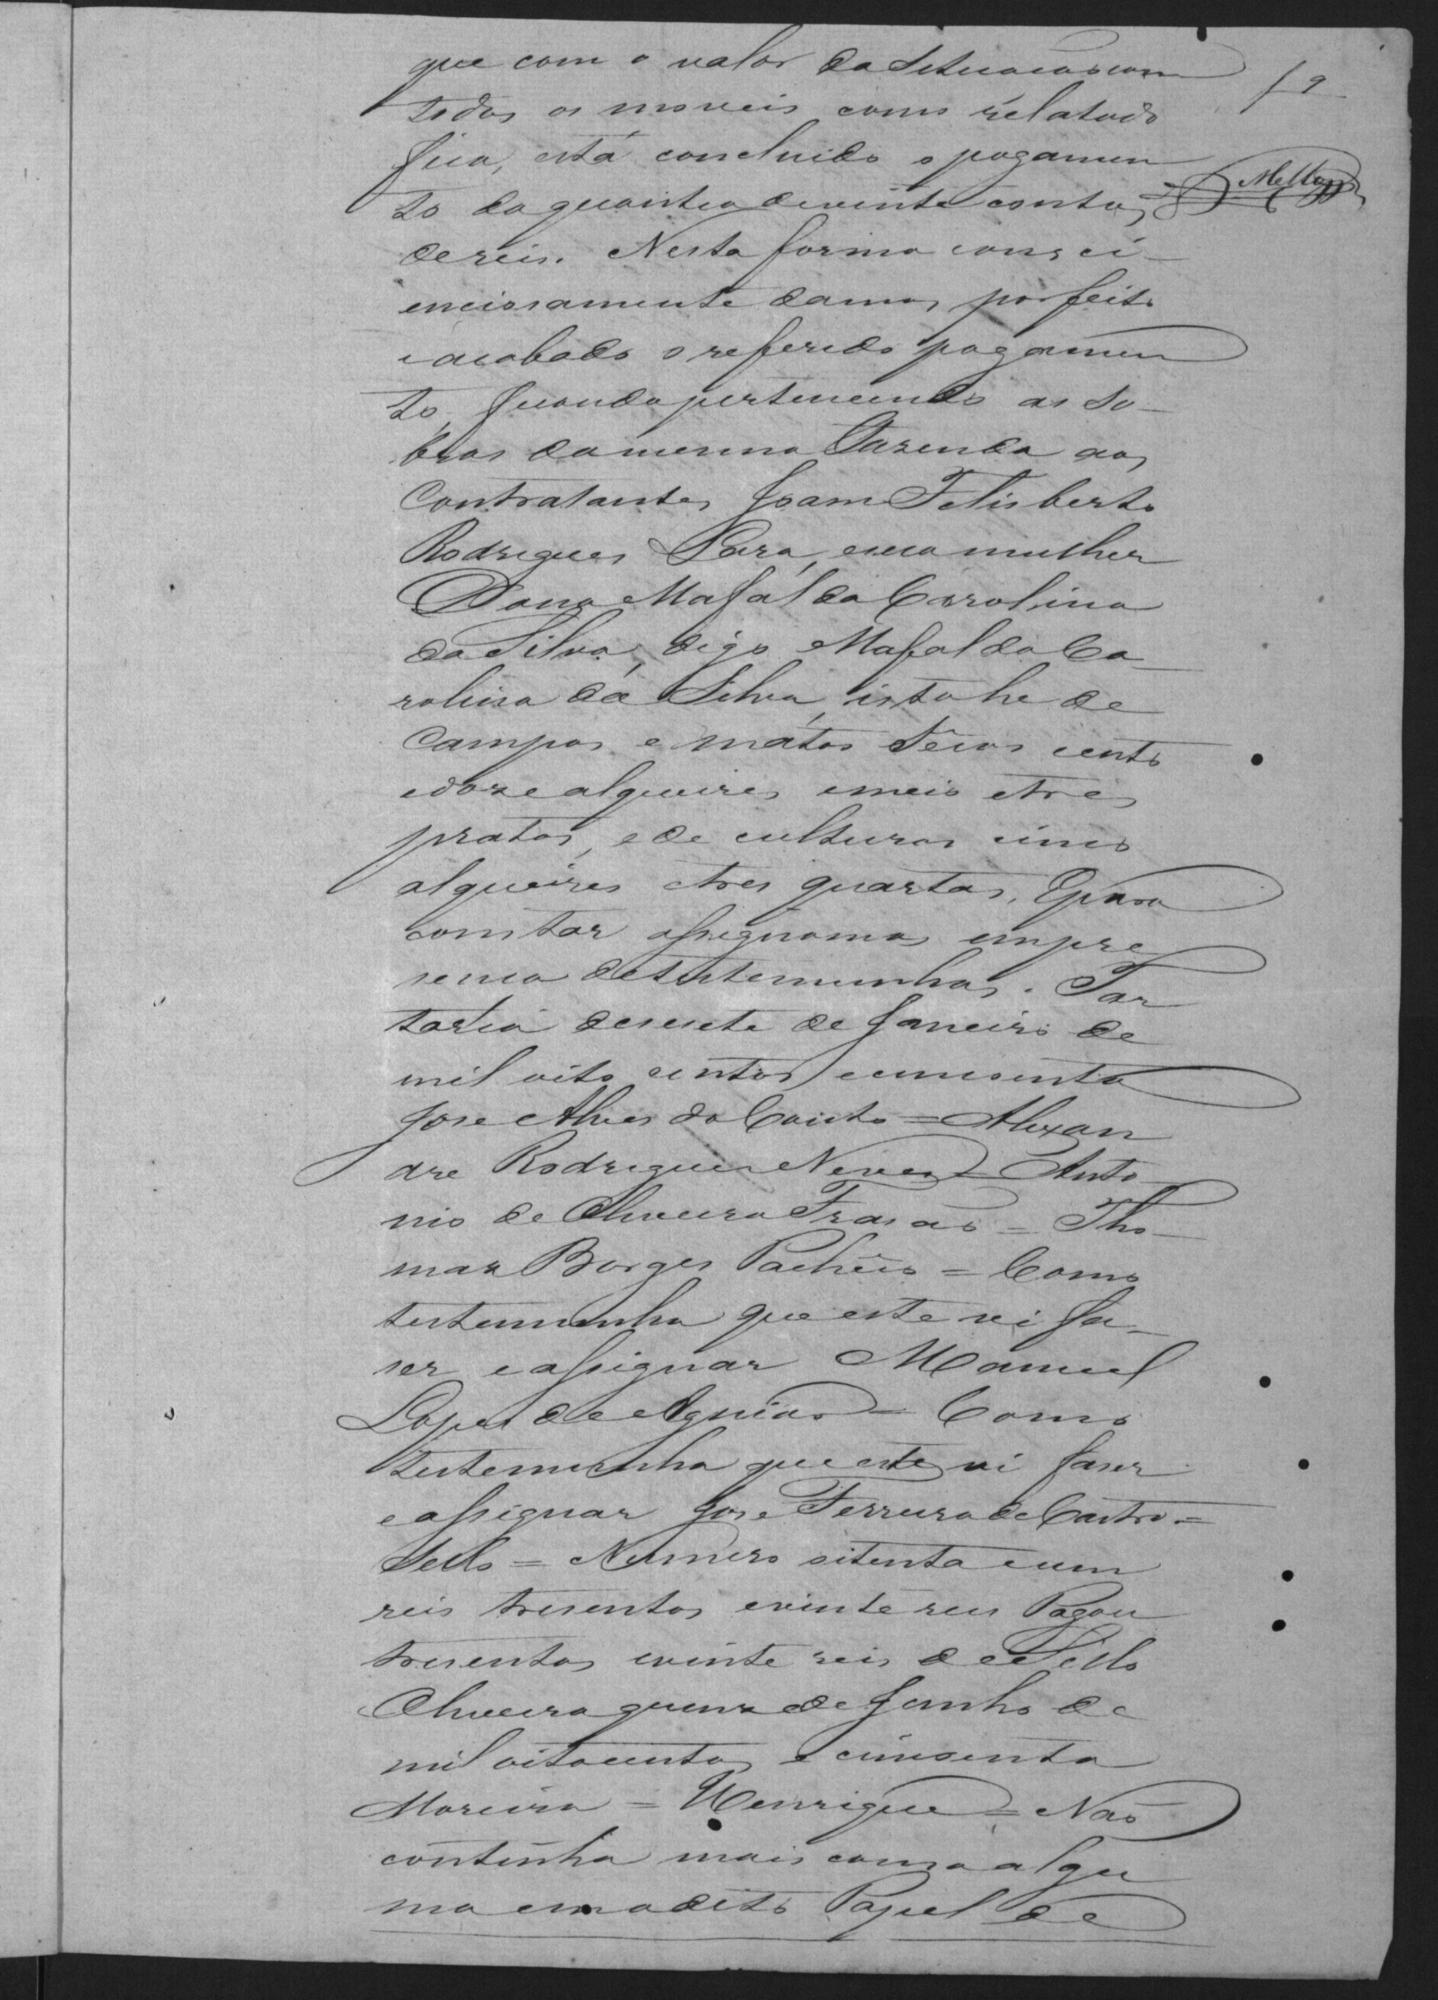 que com o valor da Situacao com
f 9
todos os moveis como relatado
fica, está concluido o pagamen
to da quantia de vinte contos
de reis. Nesta forma consci-
enciosamente damos por feito
e acabado o referido pagamen
to, ficando pertencendo as so-
bras da mesma Fazenda aos
Contratantes Joam Felisberto
Rodrigues Para, e sua mulher
Dona Mafálda Carolina
da Silva, digo Mafalda Ca-
rolina da Silva, isto he de
Campos e mátos sêcos cento
e doze alqueires e meio e tres
pratos, e de culturas cinco
alqueires e tres quartas. E para
constar assignamos em pre
senca de testemunhas.
desesete de Janeiro de
mil oito centos e cincoenta
Jose Alves do Couto = Alexan
dre Rodrigues Neves = Anto
nio de Oliveira Frasão = Tho-
maz Borges Pachêco = Como
testemunha que este vi fa-
ser e assignar Manuel
Lopes de Aguiar = Como
testemunha que este vi faser
e assignar Jose Ferreira de Castro =
Sello = Numero oitenta e um
reis tresentos e vinte reis Pagou
tresentos e vinte reis de Sello
Oliveira quinze de Junho de
mil oitocentos e cincoenta
Moreira = Henrique = Não
continha mais cousa algu
ma em o dito Papel de